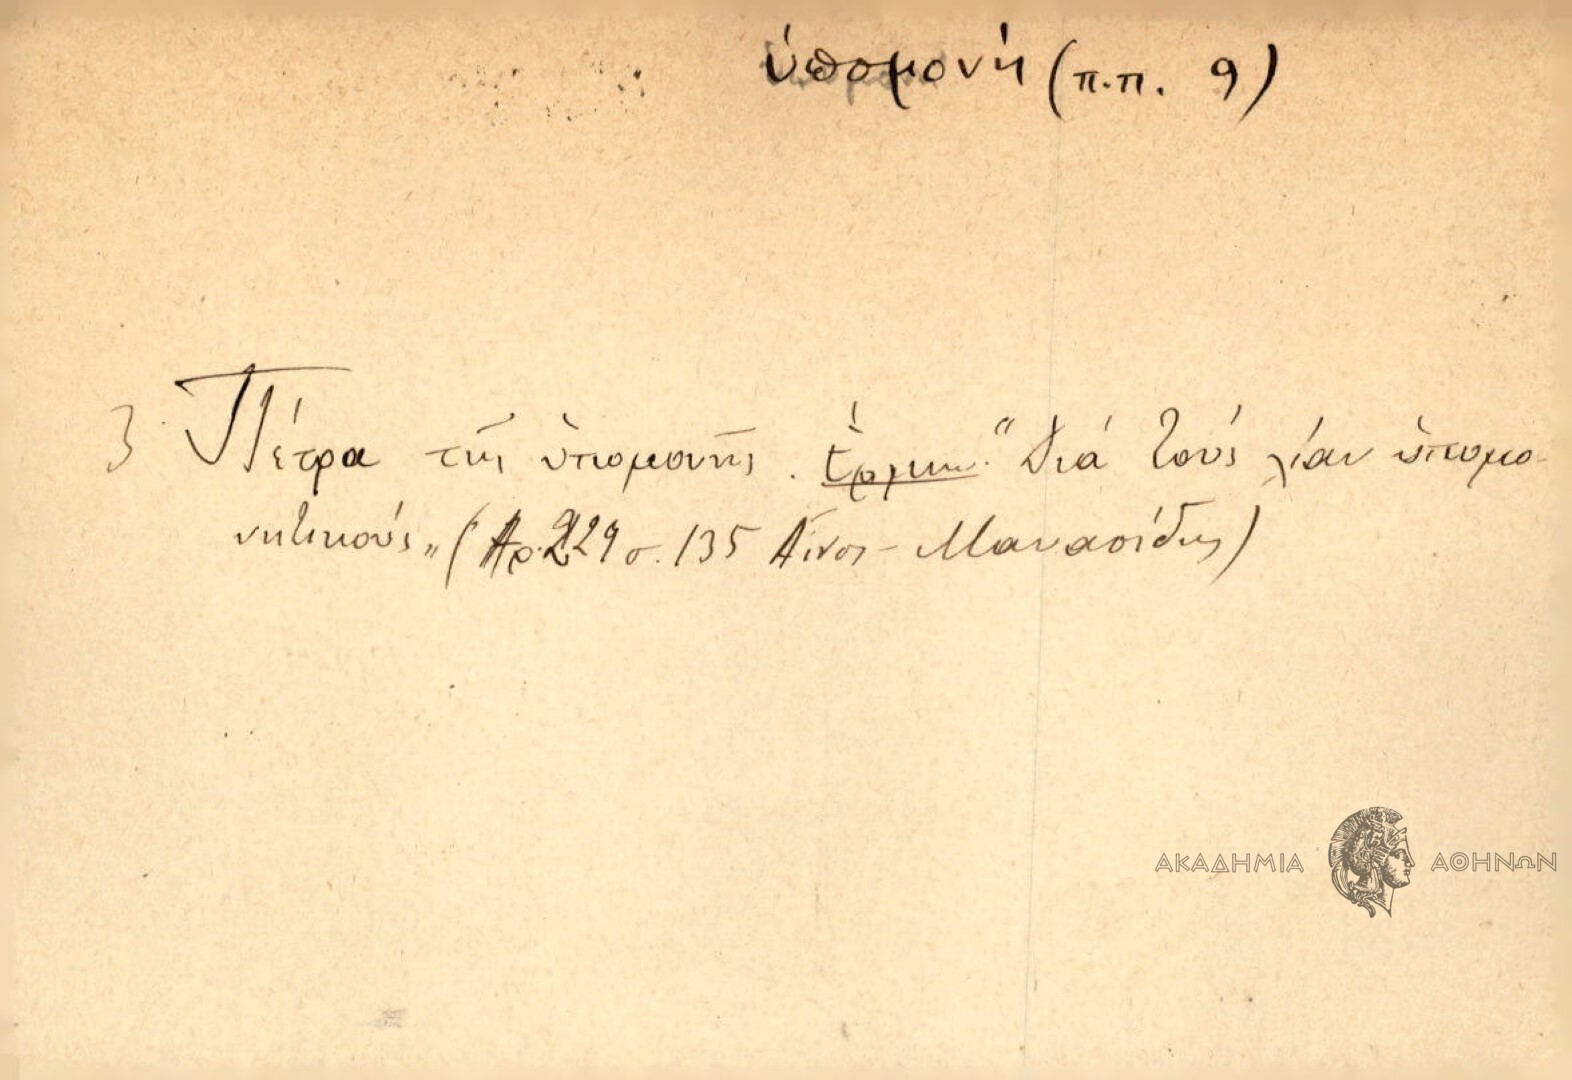 ὑπομονή (π.π. 9)
3. Πέτρα τῆς ὑπομονῆς. Ἑρμην. "Διά τούς λίαν ὑπομο-
νητικούς„ (Ἀρ. 229 σ. 135 Αἶνος - Μανασσίδης)
ΑΚΑΔΗΜΙΑ ΑΘΗΝΩΝ